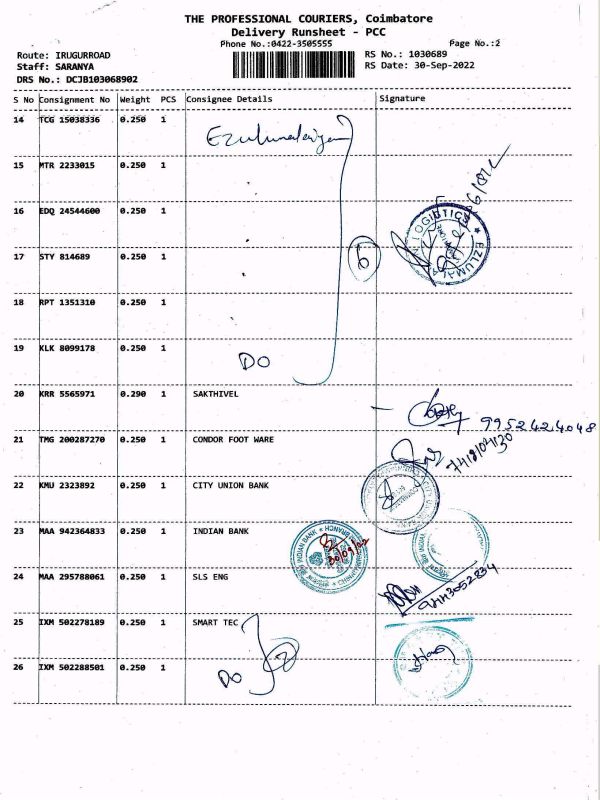 THE PROFESSIONAL COURIERS, Coimbatore
Delivery Runsheet - PCC
Phone No.:0422-3505555
Page No.:2
Route: IRUGURROAD
RS No.: 1030689
Staff: SARANYA
RS Date: 30-Sep-2022
DRS No.: DCJB103068902
S No Consignment No Weight PCS Consignee Details Signature
14 TCG 15038336 0.250 1
15 MTR 2233015 0.250 1
16 EDQ 24544600 0.250 1
LOGISTICS
EZLUMALA
17 STY 814689 0.250 1
6
18 RPT 1351310 0.250 1
19 KLK 8099178 0.250 1
DO
20 KRR 5565971 0.290 1 SAKTHIVEL
9952424048
21 TMG 200287270 0.250 1 CONDOR FOOT WARE
22 KMU 2323892 0.250 1 CITY UNION BANK
23 MAA 942364833 0.250 1 INDIAN BANK
INDIAN BANK
BRANCH
30/09/22
24 MAA 295788061 0.250 1 SLS ENG
25 IXM 502278189 0.250 1 SMART TEC
26 IXM 502288501 0.250 1
DO
2